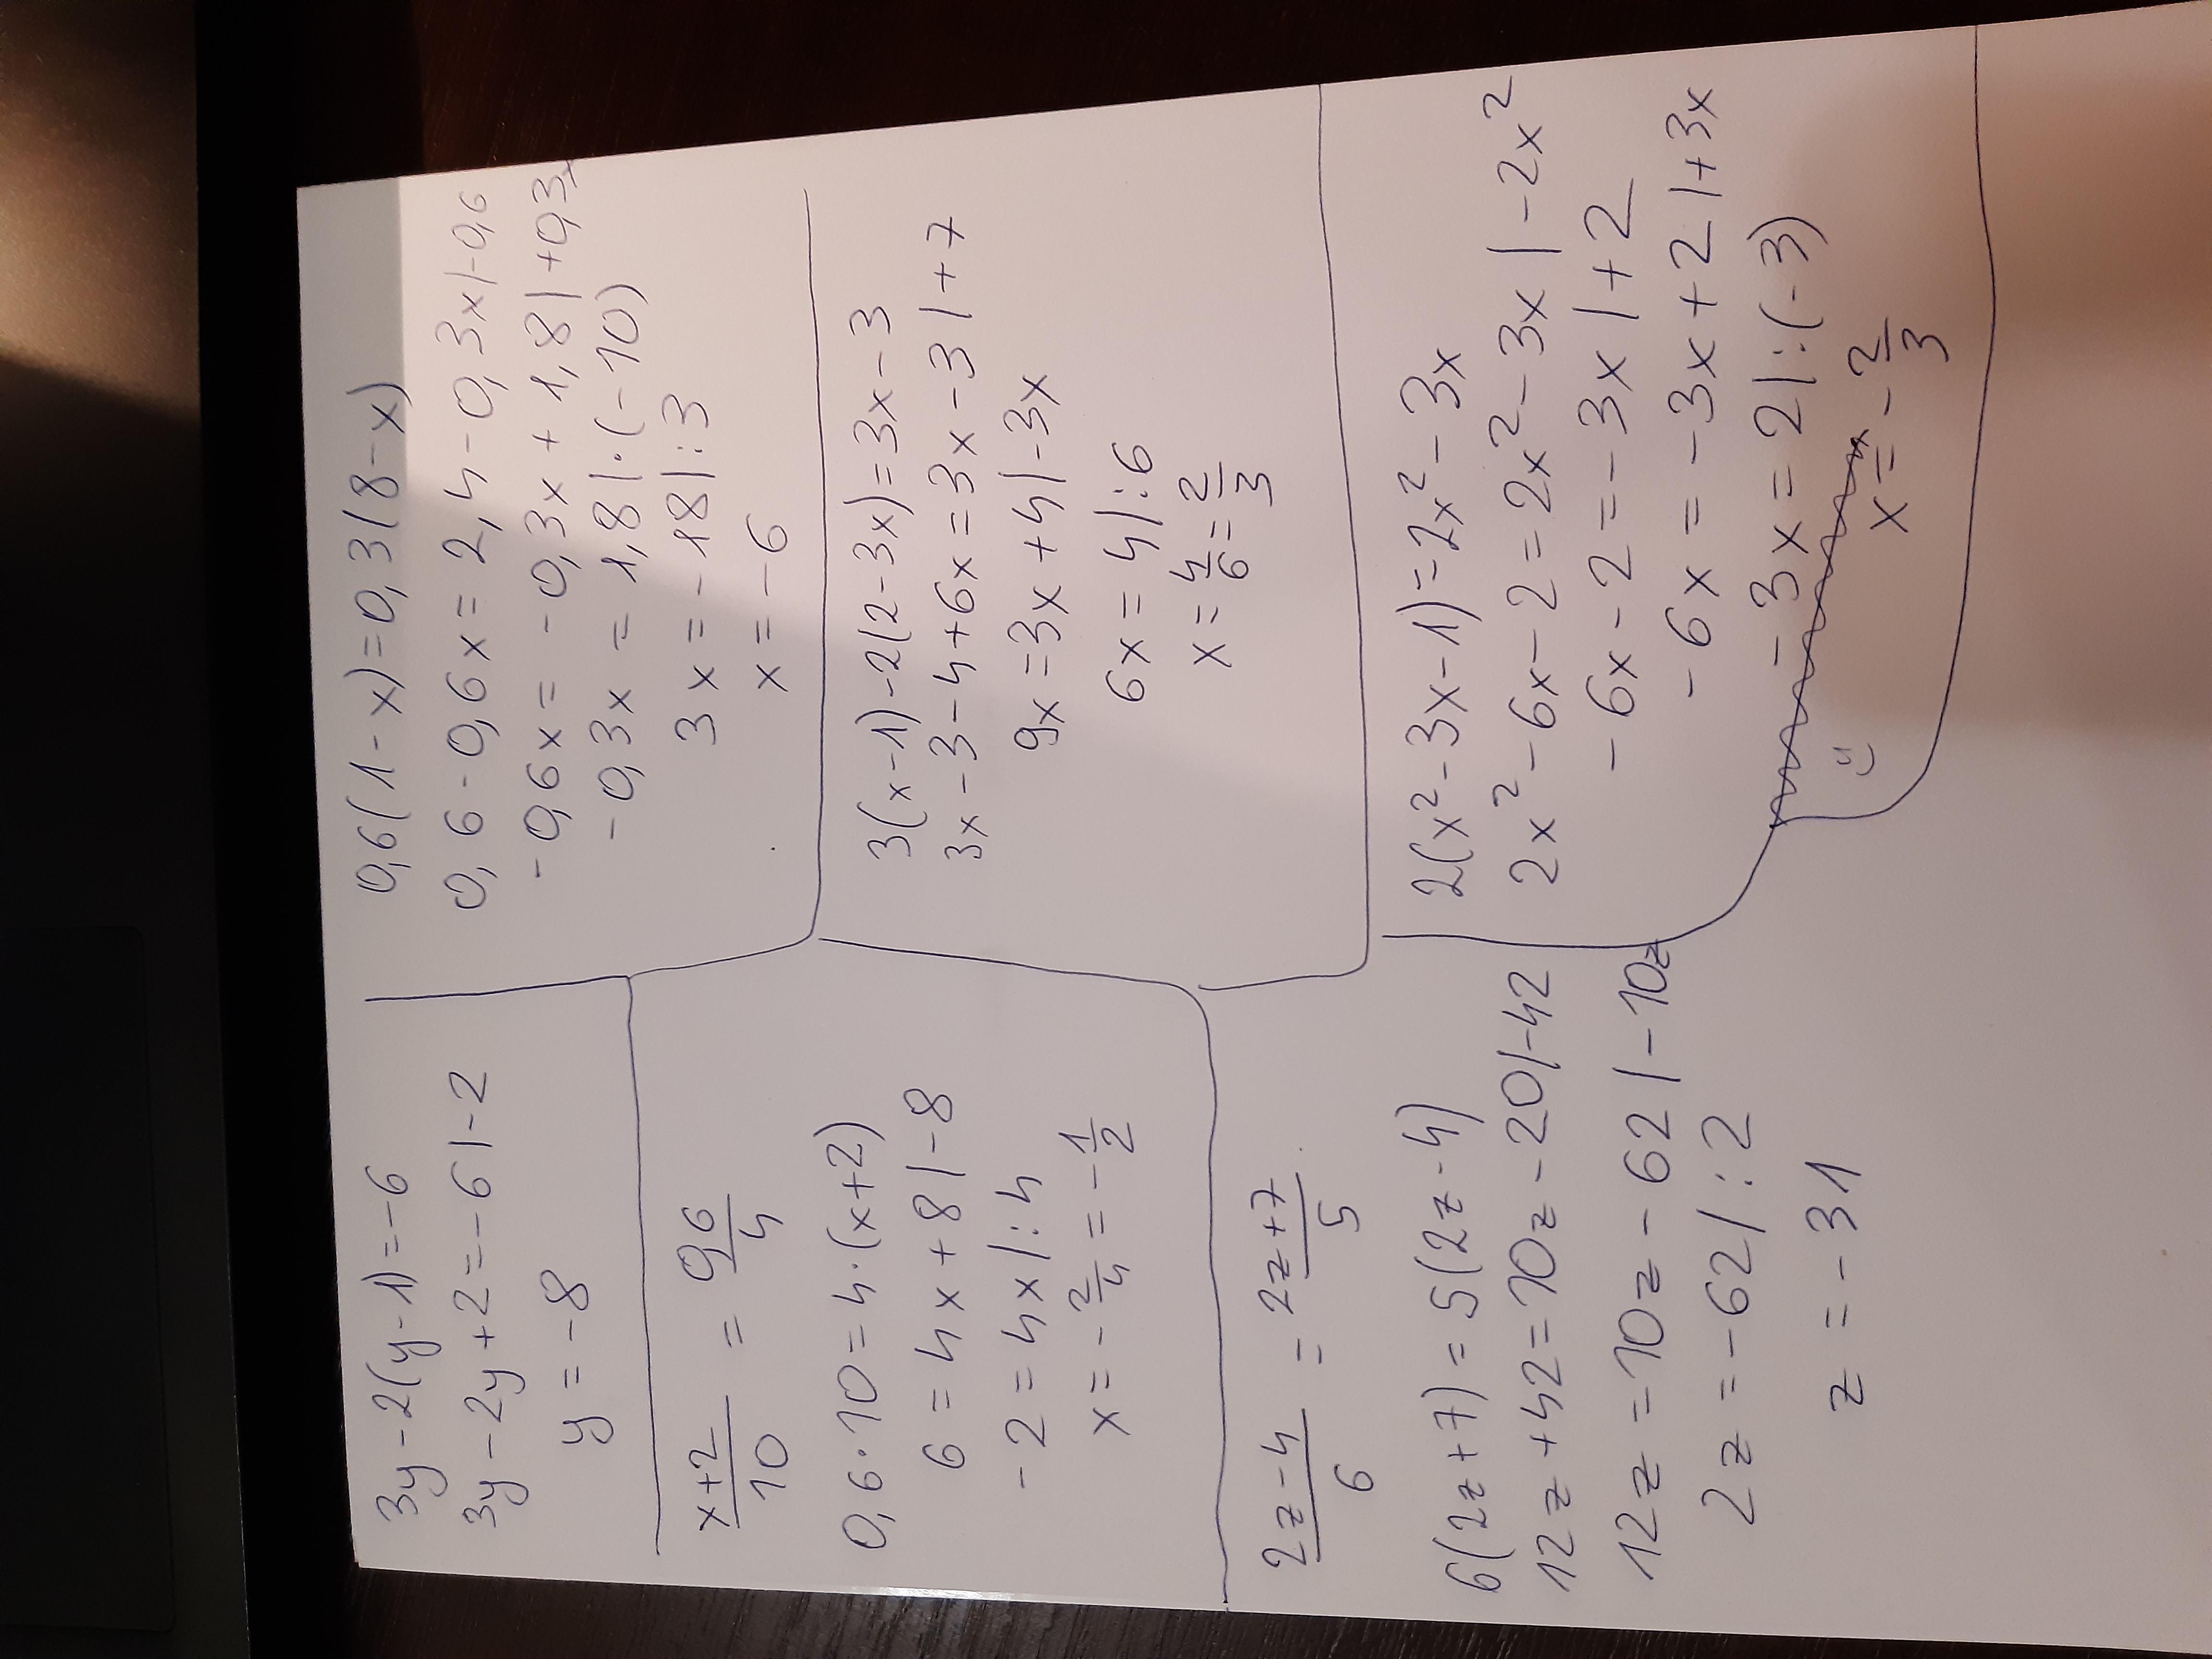 3y-2(y-1)=-6
3y-2y+2=-6|-2
y=-8
x+2/10 = 0,6/4
0,6·10=4·(x+2)
6=4x+8|-8
-2=4x|:4
x=-2/4=-1/2
2z-4/6 = 2z+7/5
6(2z+7)=5(2z-4)
12z+42=10z-20|-42
12z=10z-62|-10z
2z=-62|:2
z=-31
0,6(1-x)=0,3(8-x)
0,6-0,6x=2,4-0,3x|-0,6
-0,6x=-0,3x+1,8|+0,3x
-0,3x=1,8|·(-10)
3x=-18|:3
x=-6
3(x-1)-2(2-3x)=3x-3
3x-3-4+6x=3x-3|+7
9x=3x+4|-3x
6x=4|:6
x=4/6=2/3
2(x²-3x-1)=2x²-3x
2x²-6x-2=2x²-3x|-2x²
-6x-2=-3x|+2
-6x=-3x+2|+3x
-3x=2|:(-3)
x=-2/3